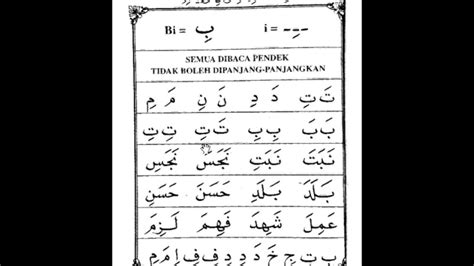 Bi = بِ    i = ـِـ
SEMUA DIBACA PENDEK
TIDAK BOLEH DIPANJANG-PANJANGKAN
تَ تِ دَ دِ نَ نِ مَ مِ
بَ بَ بِ بِ تَ تِ تِ تِ
نَبَتَ نَبَتِ نَجَسَ نَجَسِ
بَلَدَ بَلَدِ حَسَنَ حَسَنِ
عَمِلَ شَهِدَ فَهِمَ لَزِمَ